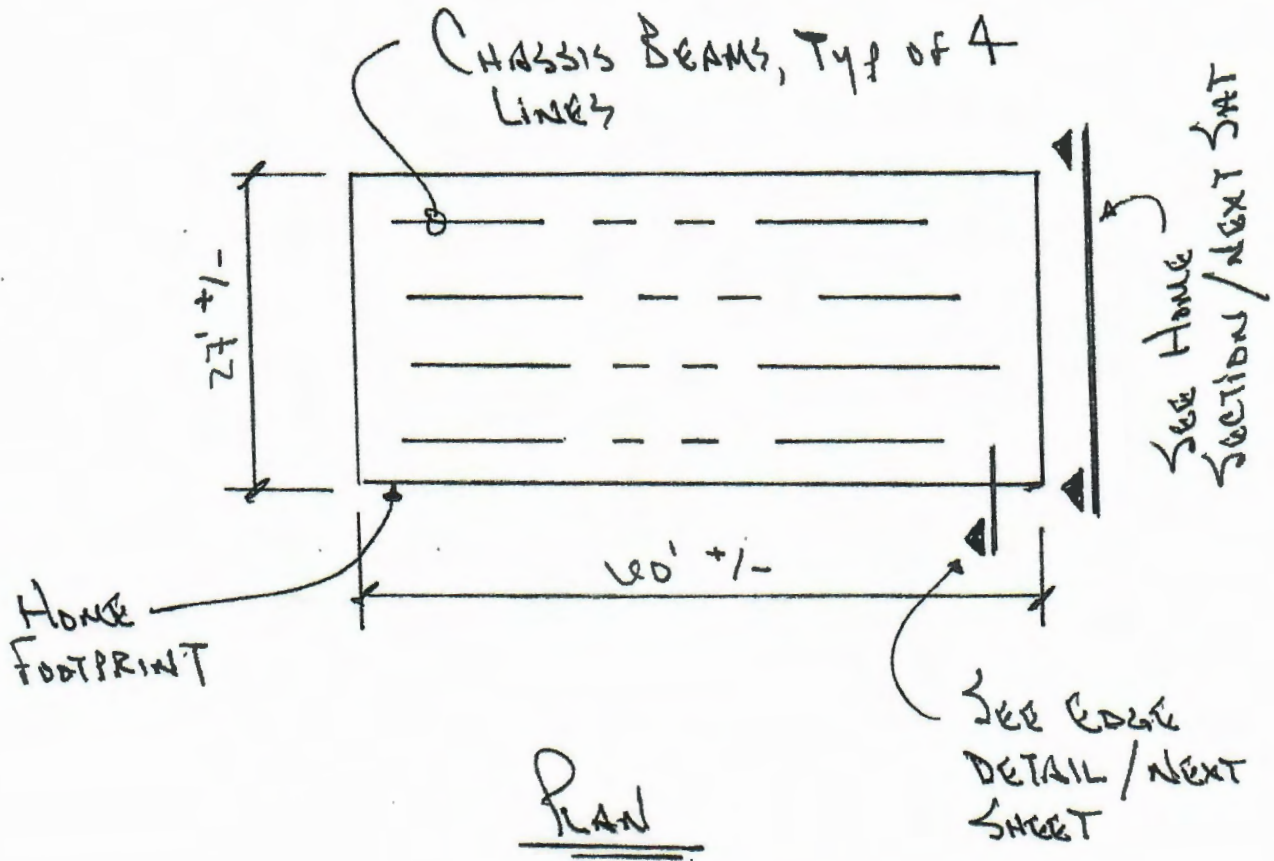 CHASSIS BEAMS, TYP OF 4
LINES
27' +/-
SEE HOME
SECTION/NEXT SHT
60' +/-
HOME
FOOTPRINT
SEE EDGE
DETAIL/NEXT
SHEET
PLAN